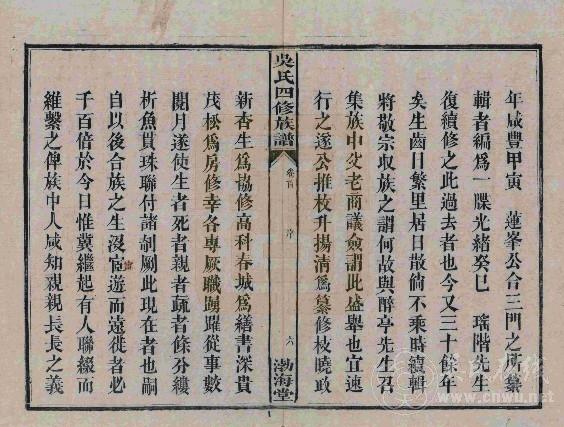 年咸豐甲寅　蓮峯公合三門之所纂
輯者編爲一牒光緒癸巳　瑤階先生
復續修之此過去者也今又三十餘年
矣生齒日繁里居日散倘不乘時續輯
將敬宗收族之謂何故與醉亭先生召
集族中父老商議僉謂此盛舉也宜速
行之遂公推校升揚清爲纂修枝曉政
吳氏四修族譜
卷首
序
六
渤海堂
新香生爲協修高科春城爲繕書深貴
茂松爲房修幸各專厥職踴躍從事數
閱月遂使生者死者親者疏者條分縷
析魚貫珠聯付諸剞劂此現在者也嗣
自以後合族之生沒宦遊而遠徙者必
千百倍於今日惟冀繼起有人聯綴而
維繫之俾族中人咸知親親長長之義
www.cnwu.net